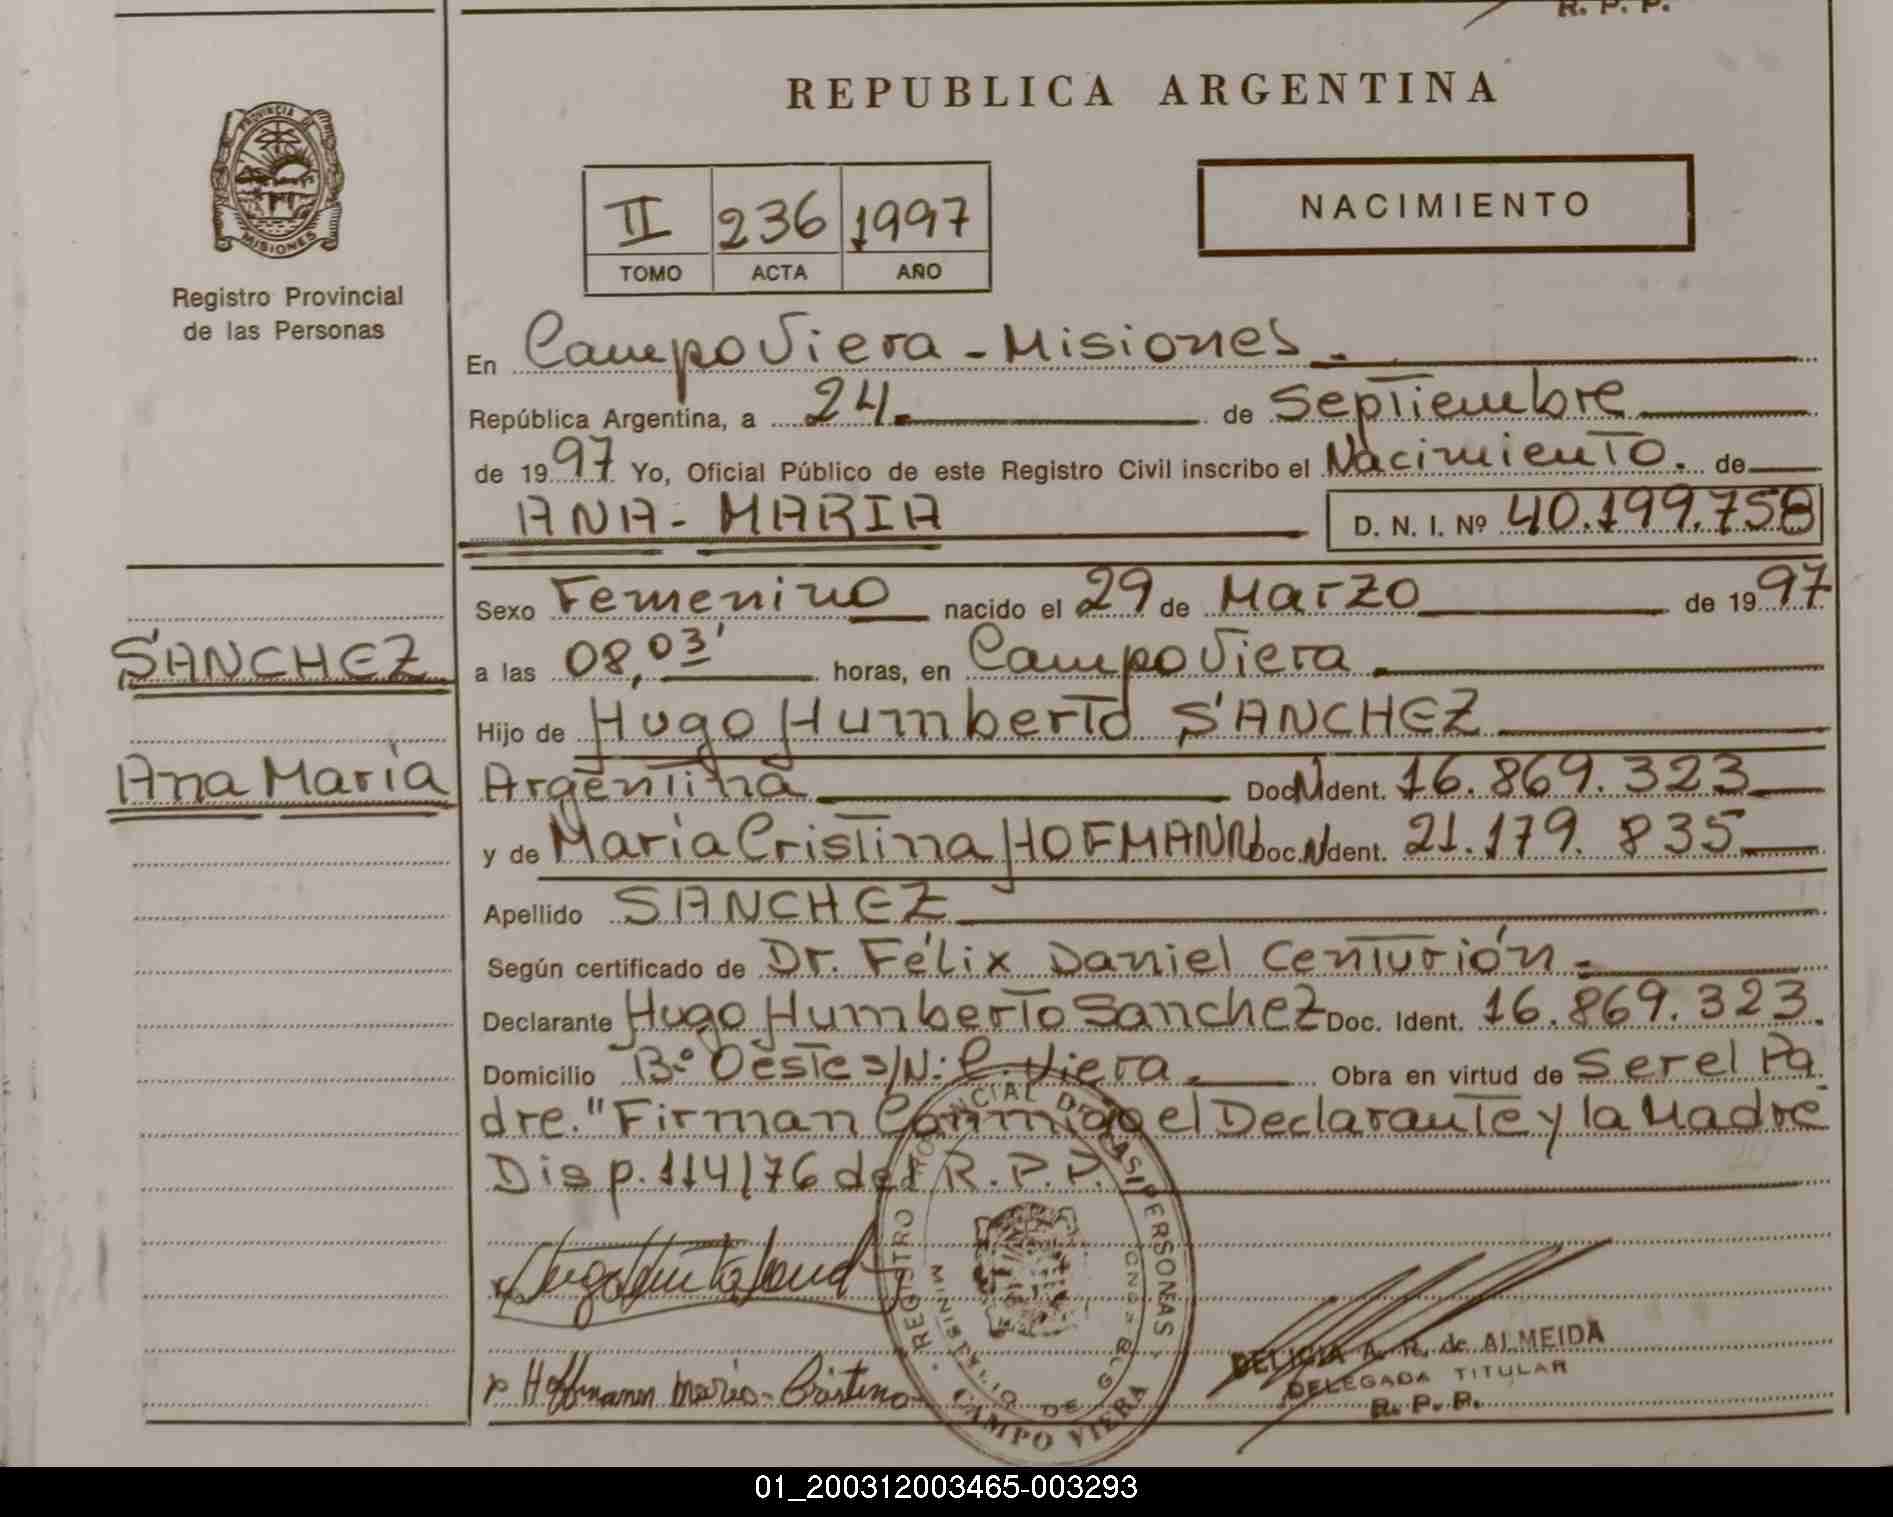 R. P. P.
REPUBLICA ARGENTINA
PROVINCIA
MISIONES
Registro Provincial
de las Personas
II 236 1997
TOMO ACTA AÑO
NACIMIENTO
En Campo Viera - Misiones.
República Argentina, a 24. de Septiembre
de 1997 Yo, Oficial Público de este Registro Civil inscribo el Nacimiento. de
ANA - MARIA D. N. I. Nº 40.199.758
Sexo Femenino nacido el 29 de Marzo de 1997
SANCHEZ
a las 08,03' horas, en Campo Viera.
Hijo de Hugo Humberto SANCHEZ
Ana María
Argentina Doc. Ident. 16.869.323
y de María Cristina HOFMANN Doc. Ident. 21.179.835
Apellido SANCHEZ
Según certificado de Dr. Félix Daniel Centurión.
Declarante Hugo Humberto Sanchez Doc. Ident. 16.869.323.
Domicilio Bº Oeste S/N: C. Viera. Obra en virtud de Ser el Pa
dre." Firman Conmigo el Declarante y la Madre
Disp. 114/76 del R.P.P.
REGISTRO PROVINCIAL DE LAS PERSONAS
MINISTERIO DE GOB
CAMPO VIERA
Hoffmann Maria Cristina
DELICIA A. R. de ALMEIDA
DELEGADA TITULAR
R. P. P.
01_200312003465-003293